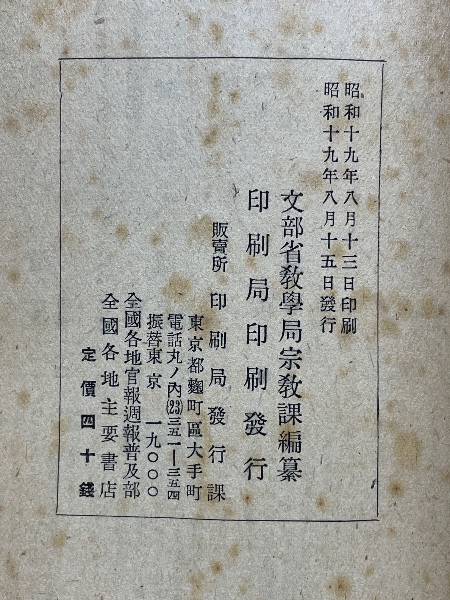 昭和十九年八月十三日印刷
昭和十九年八月十五日發行
文部省敎學局宗敎課編纂
印刷局印刷發行
販賣所 印刷局發行課
東京都麴町區大手町
電話丸ノ內(23)三五一―三五四
振替東京 一九〇〇〇
全國各地官報週報普及部
全國各地主要書店
定價四十錢